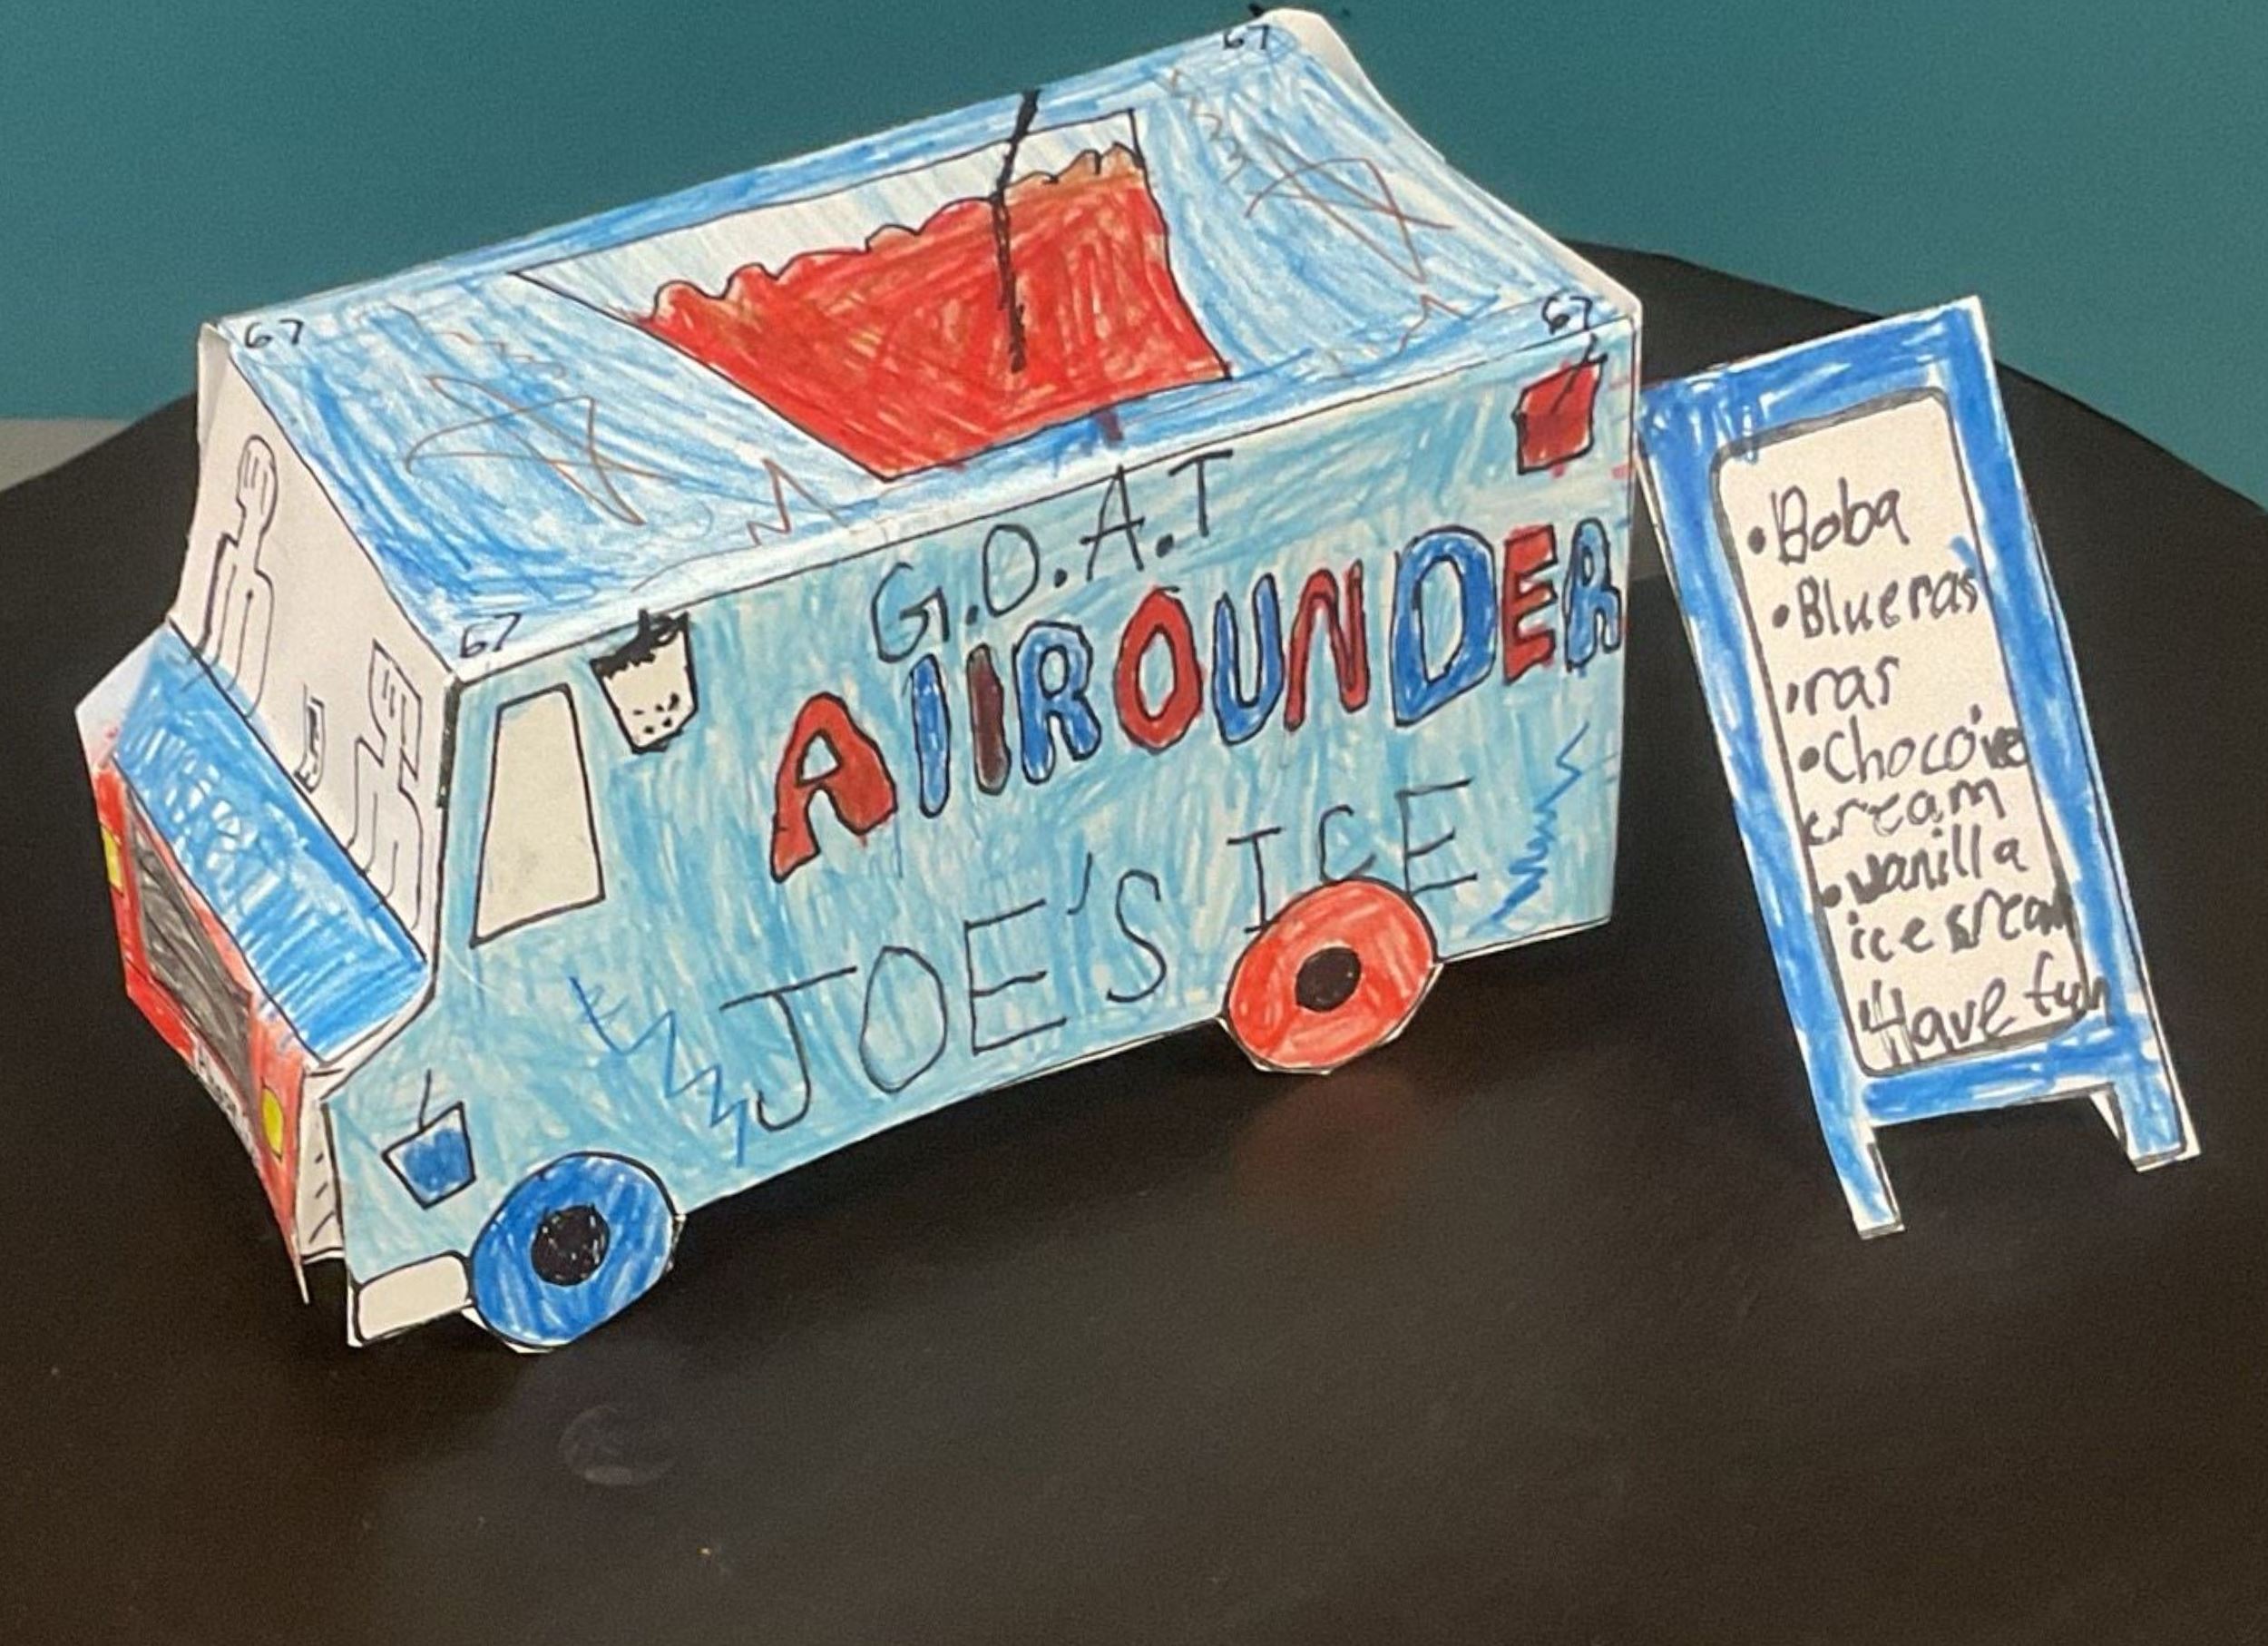 67
67
67
67
G.O.A.T
AllROUNDER
JOE'S ICE
•Boba
•Blueras
ras
•Chocoice
cream
•vanilla
ice cream
Have fun